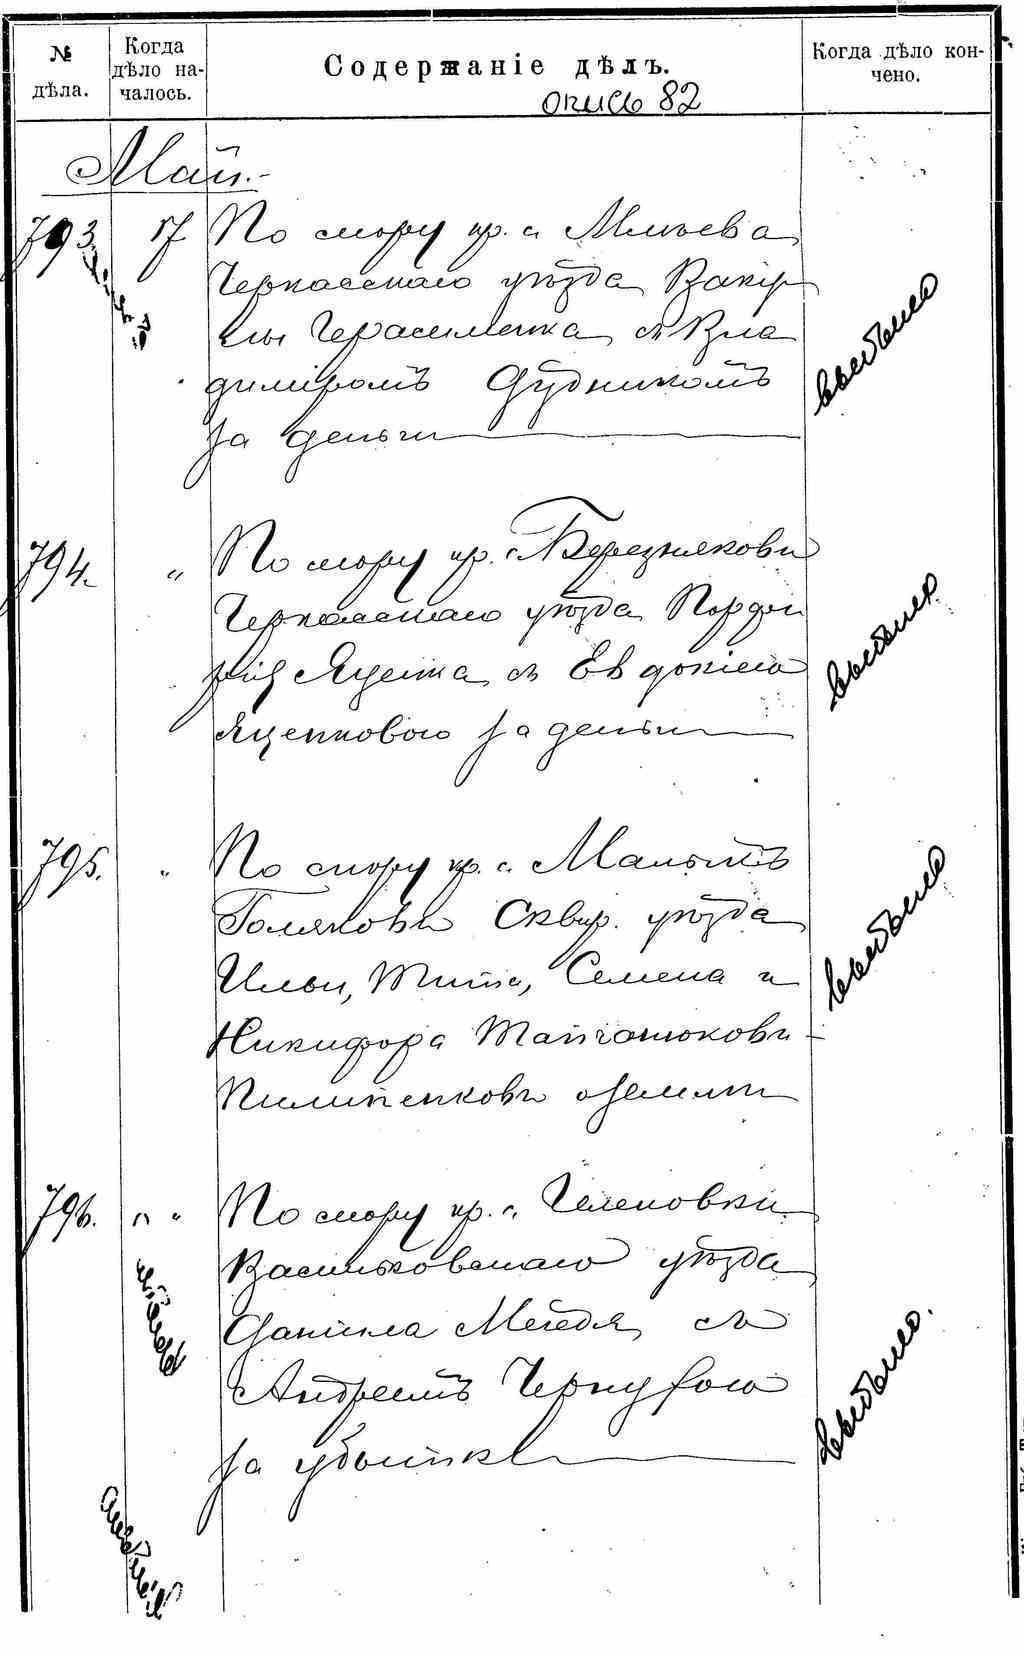 № дѣла.
Когда дѣло на-
чалось.
Содержаніе дѣлъ.
Когда дѣло кон-
чено.
опись 82
Май.
793 17 По спору кр. с. Млѣева
Черкасскаго уѣзда Ваку
лы Герасименка съ Вла
диміромъ Дудникомъ
за деньги
выбыло
794. " По спору кр. с. Березняковъ
Черкасскаго уѣзда Порфи
рія Яценка съ Евдокіею
Яценковою за деньги
выбыло
795. " По спору кр. с. Малыхъ
Голяковъ Сквир. уѣзда
Ильи, Тита, Семена и
Никифора
Пилипенковъ о землѣ
выбыло
796. " " По спору кр. с. Геленовки
Васильковскаго уѣзда
Данила съ
Андреемъ
за убытки
выбыло.